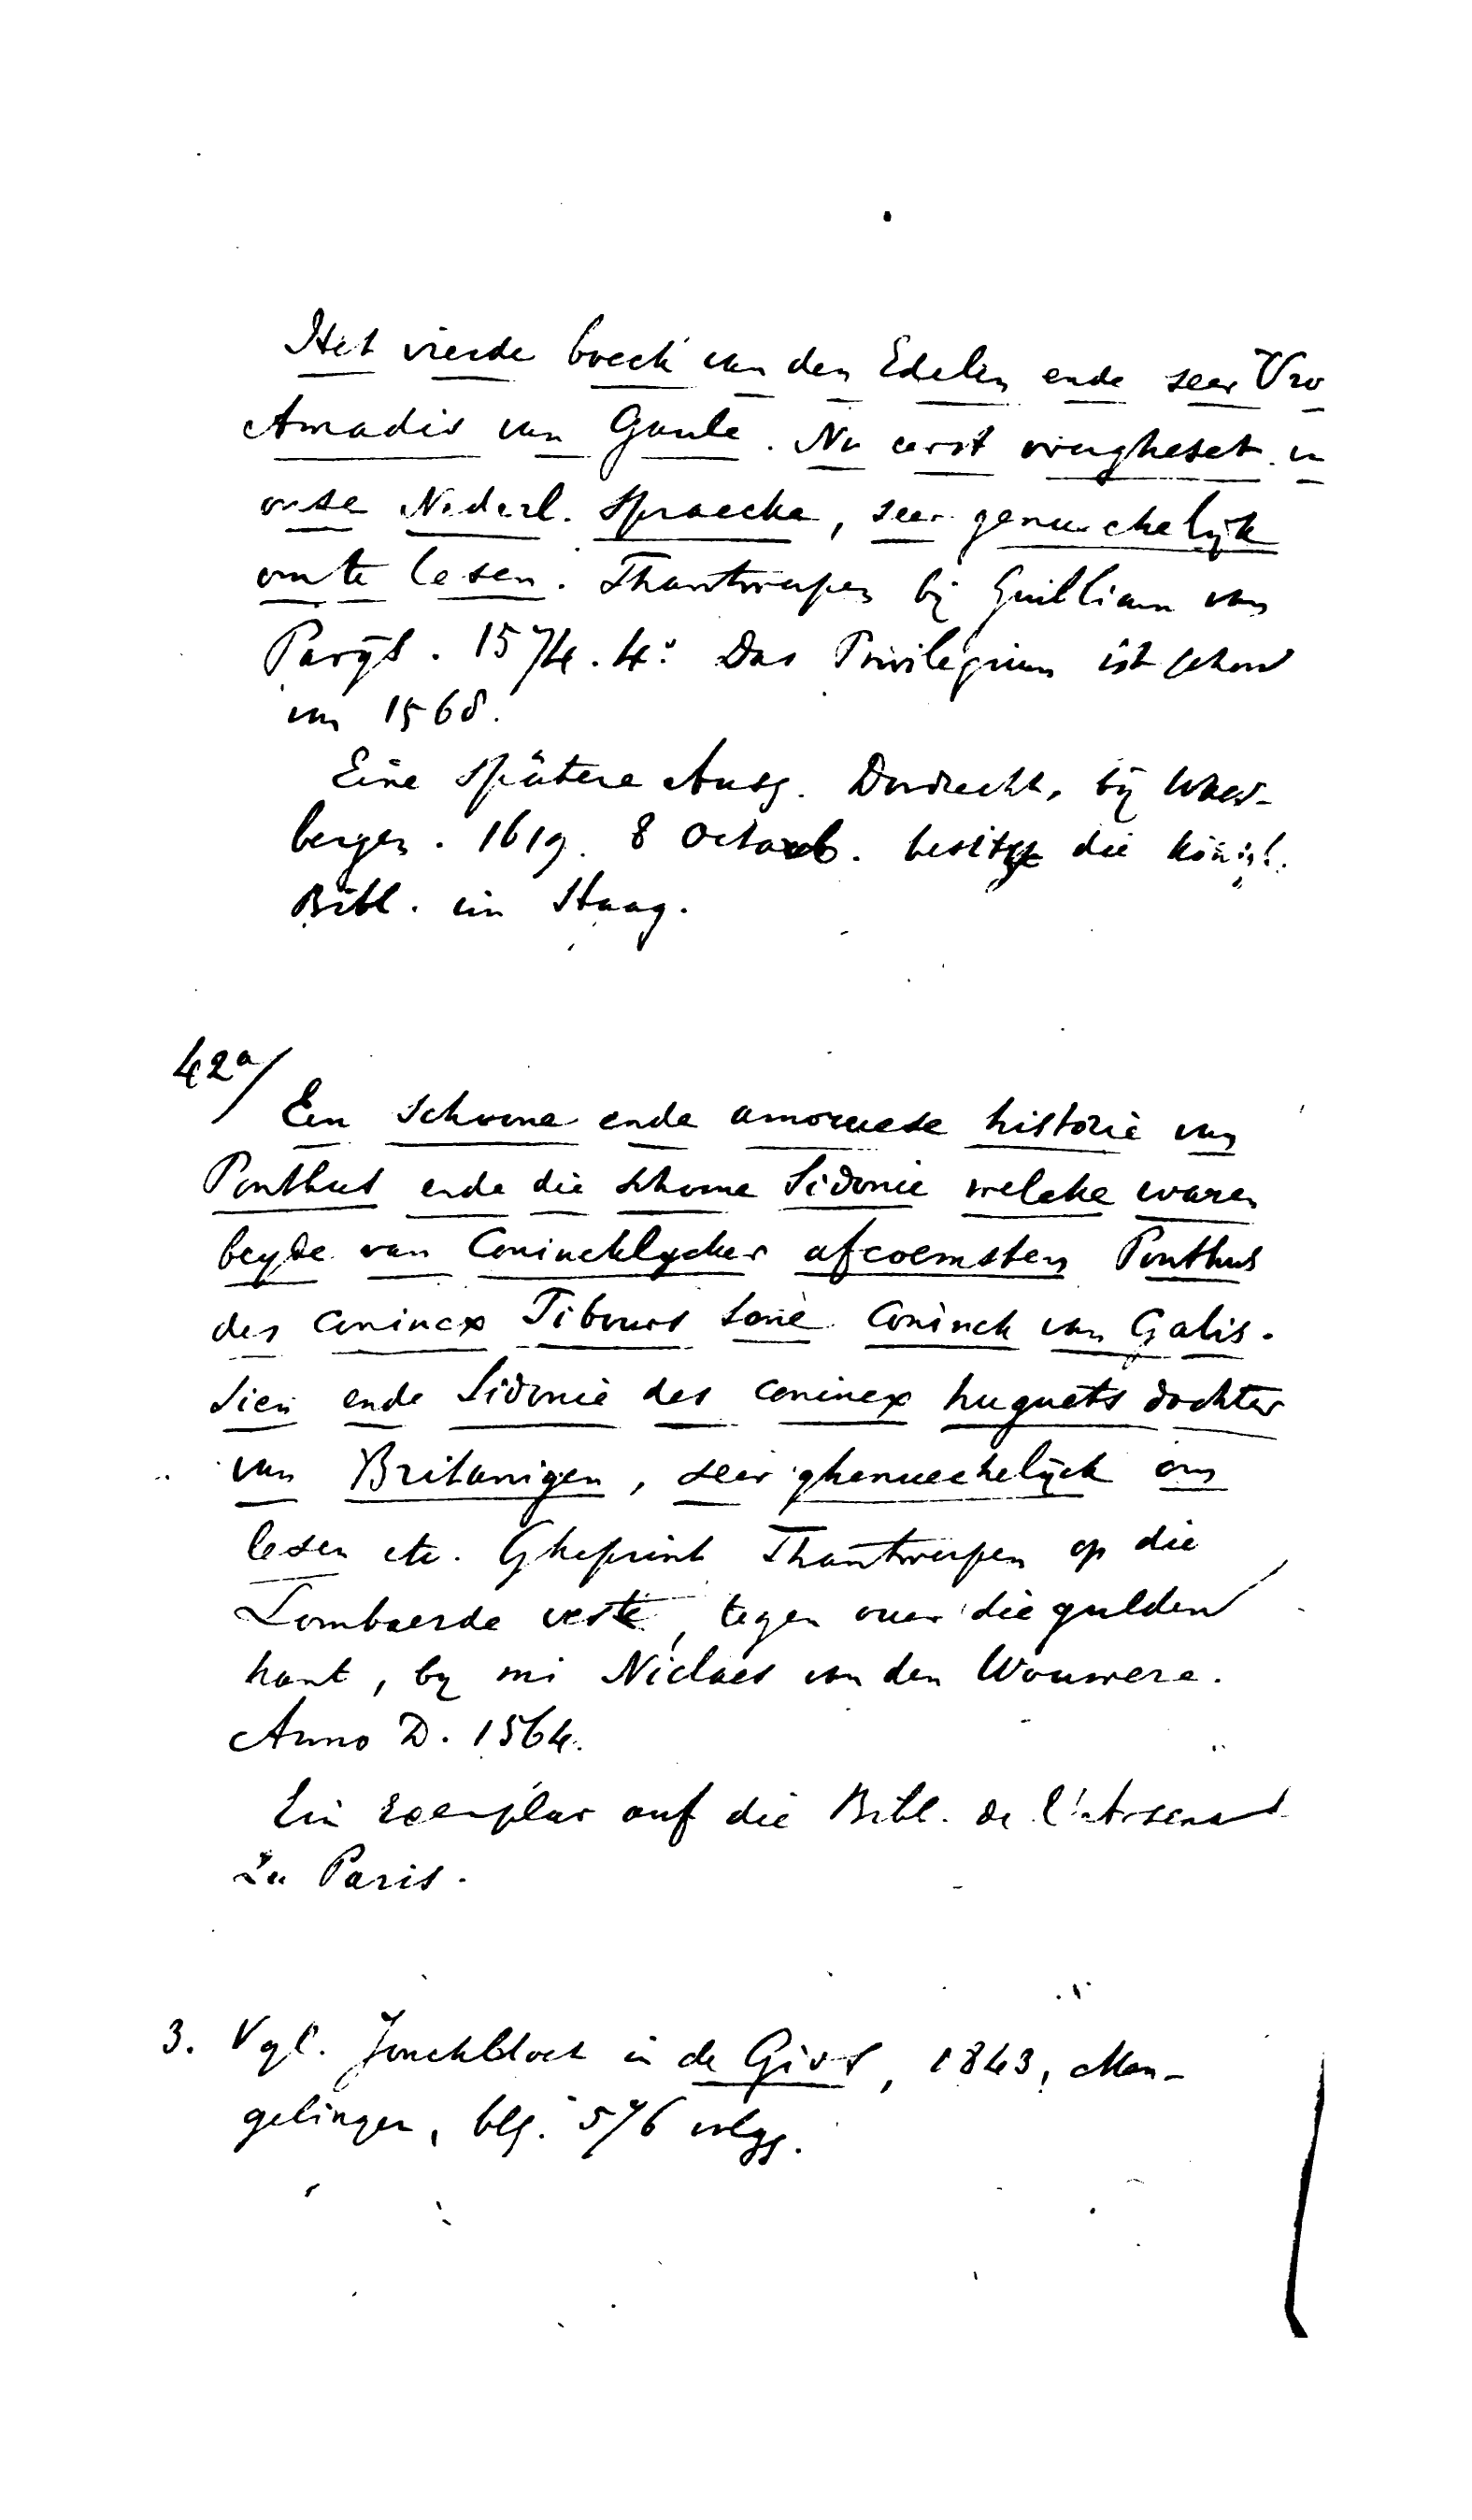 Het vierde boeck van den Edelen ende seer Vro
Amadis van Gaule. Nu eerst overgheset in
onse Nederl. Spraecke, seer genuechelijk
om te lesen. Thantwerpen bij Guilliam van
Parijs. 1574. 4º. Das Privilegium ist schon
von 1568.
Eine spätere Ausg. Dordrecht, bij Waes-
bergen. 1619. 8 Octavb. besitzt die königl.
Bibl. im Haag.
42a/
Een schoone ende amoruese historie van
Ponthus ende die schone Sidonie welcke waren
beyde van Conincklycker afcoemsten Ponthus
des conincx Tibours sone Coninck van Galis-
sien ende Sidonie des conincx huguets dochter
van Britanigen, seer ghenuechelijck om
lesen etc. Gheprint Thantwerpen op die
Lombaerde veste, tegen over die gulden
hant, by mi Niclaes van den Wouwere.
Anno D. 1564.
Ein Exemplar auf die Bibl. de l'Arsenal
zu Paris.
3. Vgl. Jonckbloet in de Gids, 1843, Men-
gelingen, blg. 576 vlgg.